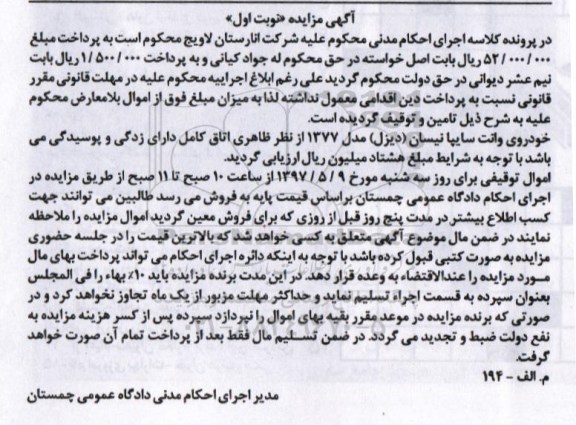 آگهی مزایده «نوبت اول»
در پرونده کلاسه اجرای احکام مدنی محکوم علیه شرکت انارستان لاویج محکوم است به پرداخت مبلغ
۵۲/۰۰۰/۰۰۰ ریال بابت اصل خواسته در حق محکوم له جواد کیانی و به پرداخت ۱/۵۰۰/۰۰۰ ریال بابت
نیم عشر دیوانی در حق دولت محکوم گردید علی رغم ابلاغ اجراییه محکوم علیه در مهلت قانونی مقرر
قانونی نسبت به پرداخت دین اقدامی معمول نداشته لذا به میزان مبلغ فوق از اموال بلامعارض محکوم
علیه به شرح ذیل تامین و توقیف گردیده است.
خودروی وانت سایپا نیسان (دیزل) مدل ۱۳۷۷ از نظر ظاهری اتاق کامل دارای زدگی و پوسیدگی می
باشد با توجه به شرایط مبلغ هشتاد میلیون ریال ارزیابی گردید.
اموال توقیفی برای روز سه شنبه مورخ ۹ / ۵ / ۱۳۹۷ از ساعت ۱۰ صبح تا ۱۱ صبح از طریق مزایده در
اجرای احکام دادگاه عمومی چمستان براساس قیمت پایه به فروش می رسد طالبین می توانند جهت
کسب اطلاع بیشتر در مدت پنج روز قبل از روزی که برای فروش معین گردید اموال مزایده را ملاحظه
نمایند در ضمن مال موضوع آگهی متعلق به کسی خواهد شد که بالاترین قیمت را در جلسه حضوری
مزایده به صورت کتبی قبول کرده باشد با توجه به اینکه دائره اجرای احکام می تواند پرداخت بهای مال
مورد مزایده را عندالاقتضاء به وعده قرار دهد. در این مدت برنده مزایده باید ۱۰٪ بهاء را فی المجلس
بعنوان سپرده به قسمت اجراء تسلیم نماید و حداکثر مهلت مزبور از یک ماه تجاوز نخواهد کرد و در
صورتی که برنده مزایده در موعد مقرر بقیه بهای اموال را نپردازد سپرده پس از کسر هزینه مزایده به
نفع دولت ضبط و تجدید می گردد. در ضمن تسلیم مال فقط بعد از پرداخت تمام آن صورت خواهد
گرفت.
م. الف - ۱۹۴
مدیر اجرای احکام مدنی دادگاه عمومی چمستان